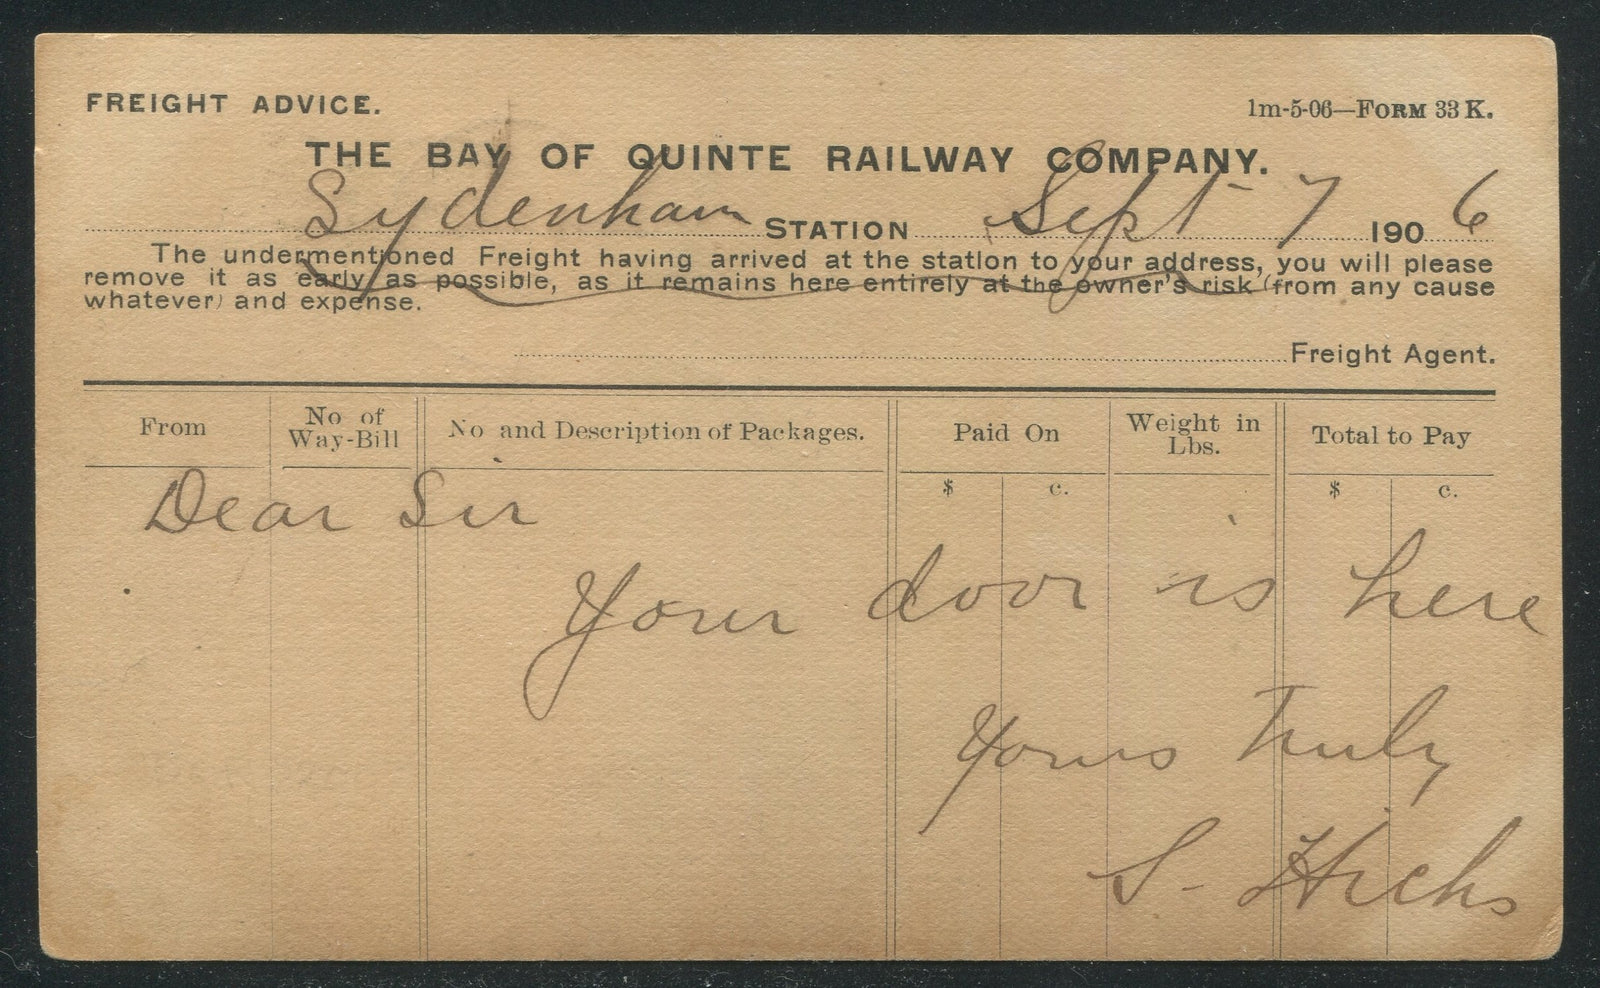 FREIGHT ADVICE.
1m-5-06—FORM 33 K.
THE BAY OF QUINTE RAILWAY COMPANY.
Sydenham STATION Sept 7 1906
The undermentioned Freight having arrived at the station to your address, you will please
remove it as early as possible, as it remains here entirely at the owner's risk (from any cause
whatever) and expense.
Freight Agent.
From
No of Way-Bill
No and Description of Packages.
Paid On
Weight in Lbs.
Total to Pay
$ c. $ c.
Dear Sir
Your door is here
Yours Truly
S- Hicks